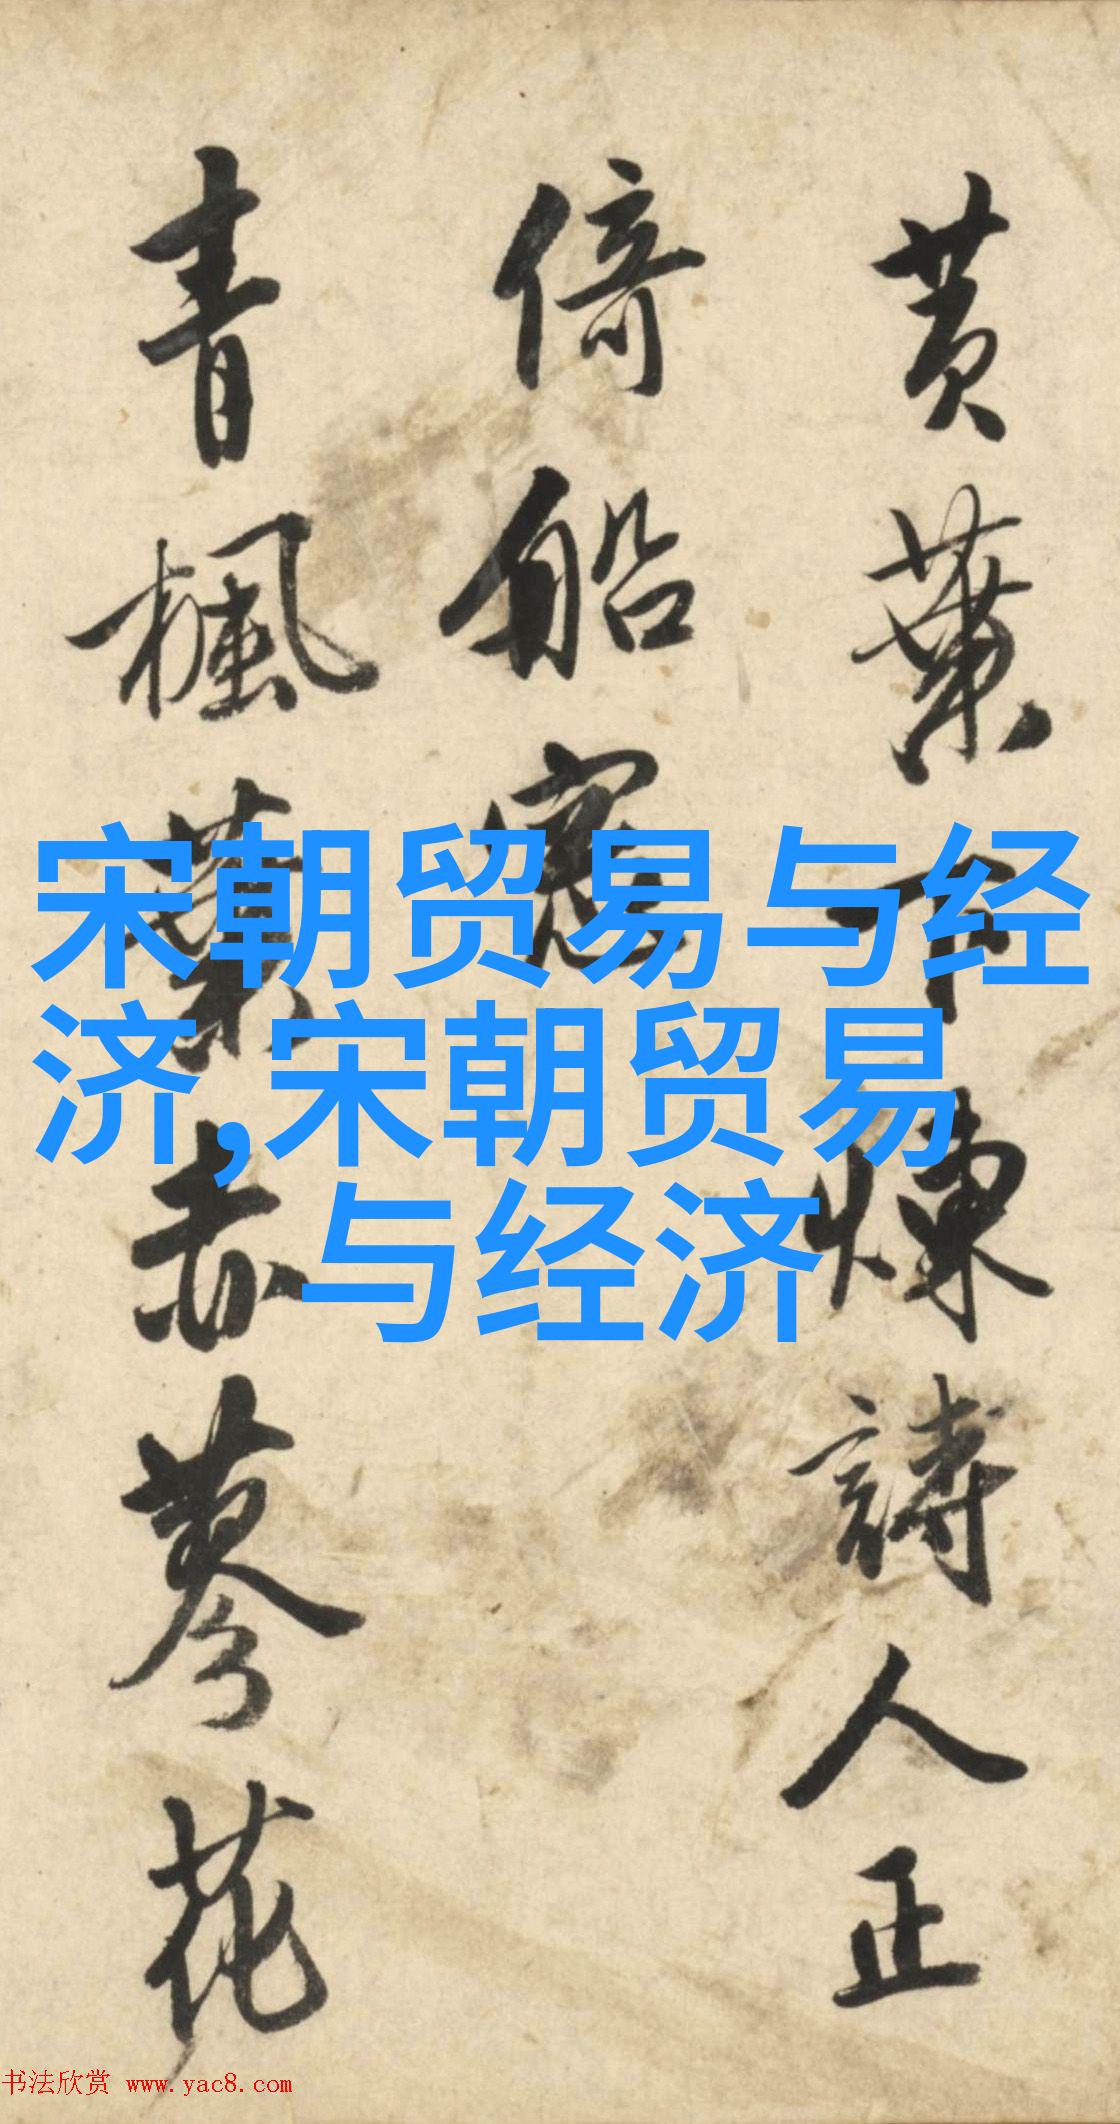 黄葉下煉詩人正
倚船窓
青楓葉赤蓼花
宋朝贸易与经
济,宋朝贸易
与经济
书法欣赏 www.yac8.com